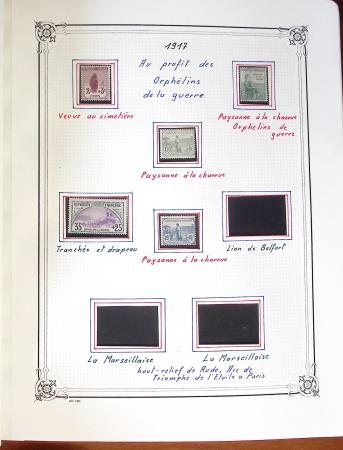 1917
Au profit des
Orphélins
de la guerre.
Veuve au cimetière
Paysanne à la charrue
Orphelins de
guerre
Paysanne à la charrue
35 +25
Tranchée et drapeau
Paysanne à la charrue
Lion de Belfort
La Marseillaise
La Marseillaise
haut-relief de Rude, Arc de
Triomphe de l'Etoile à Paris